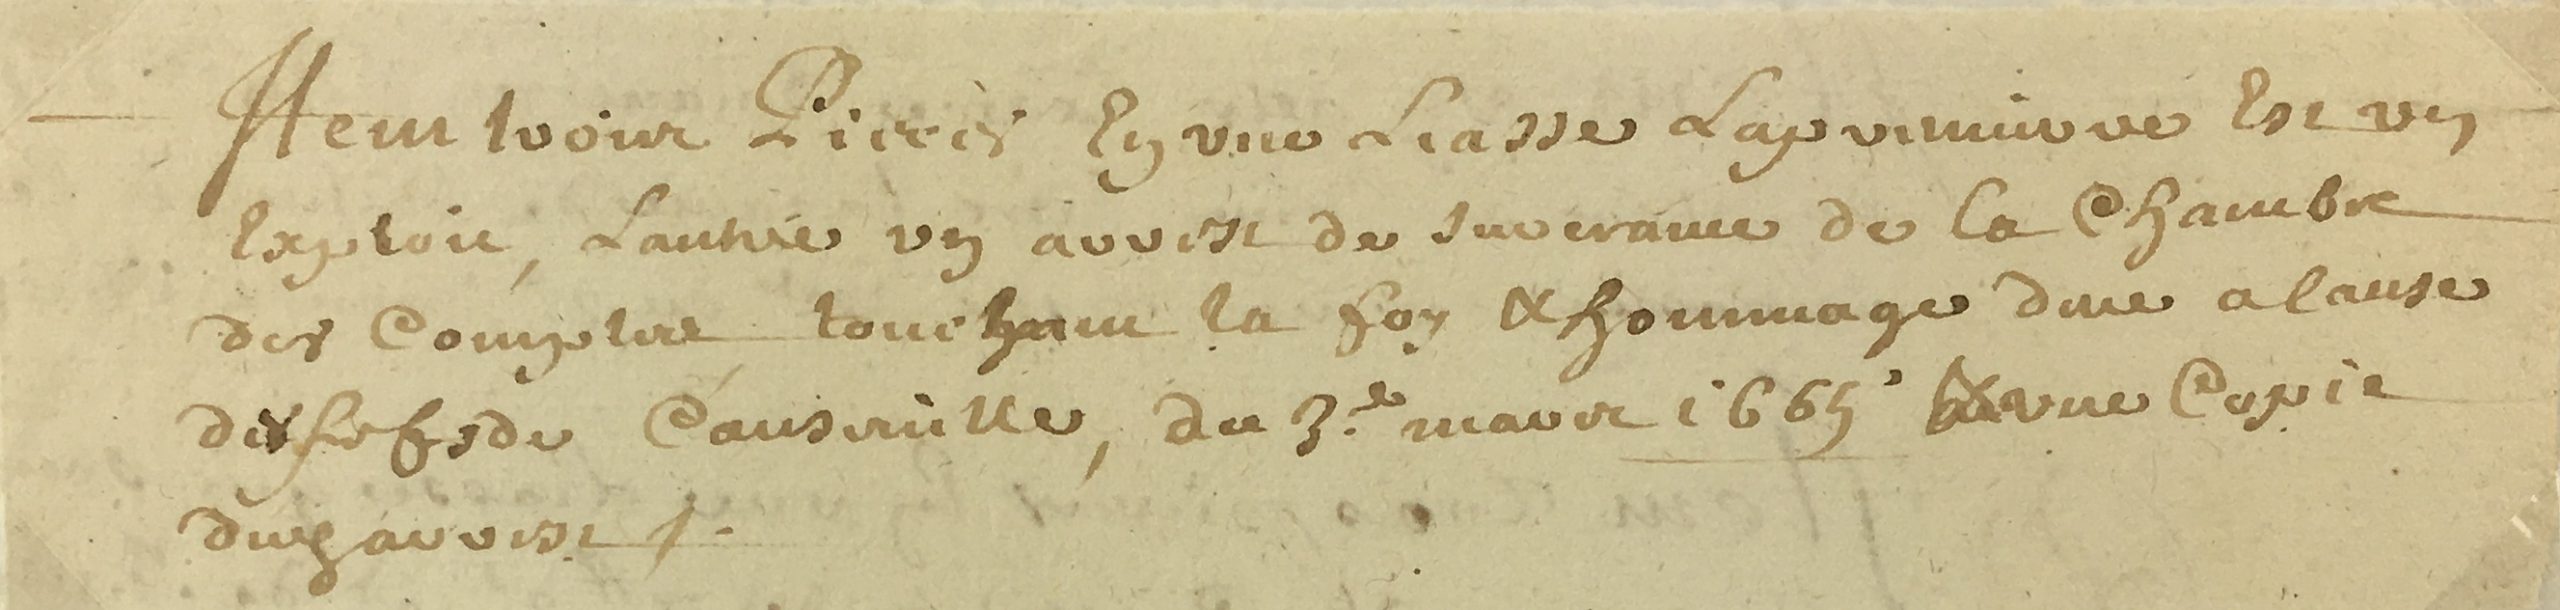 Item trois Pieces En une Liasse La premiere Est un
Exploit, Lautre un arrest de surceance de la Chambre
des Comptes touchant la foy & hommage due a Cause
des fiefs de Causeville, du 3.e mars 1665 & une Copie
dud arrest /.